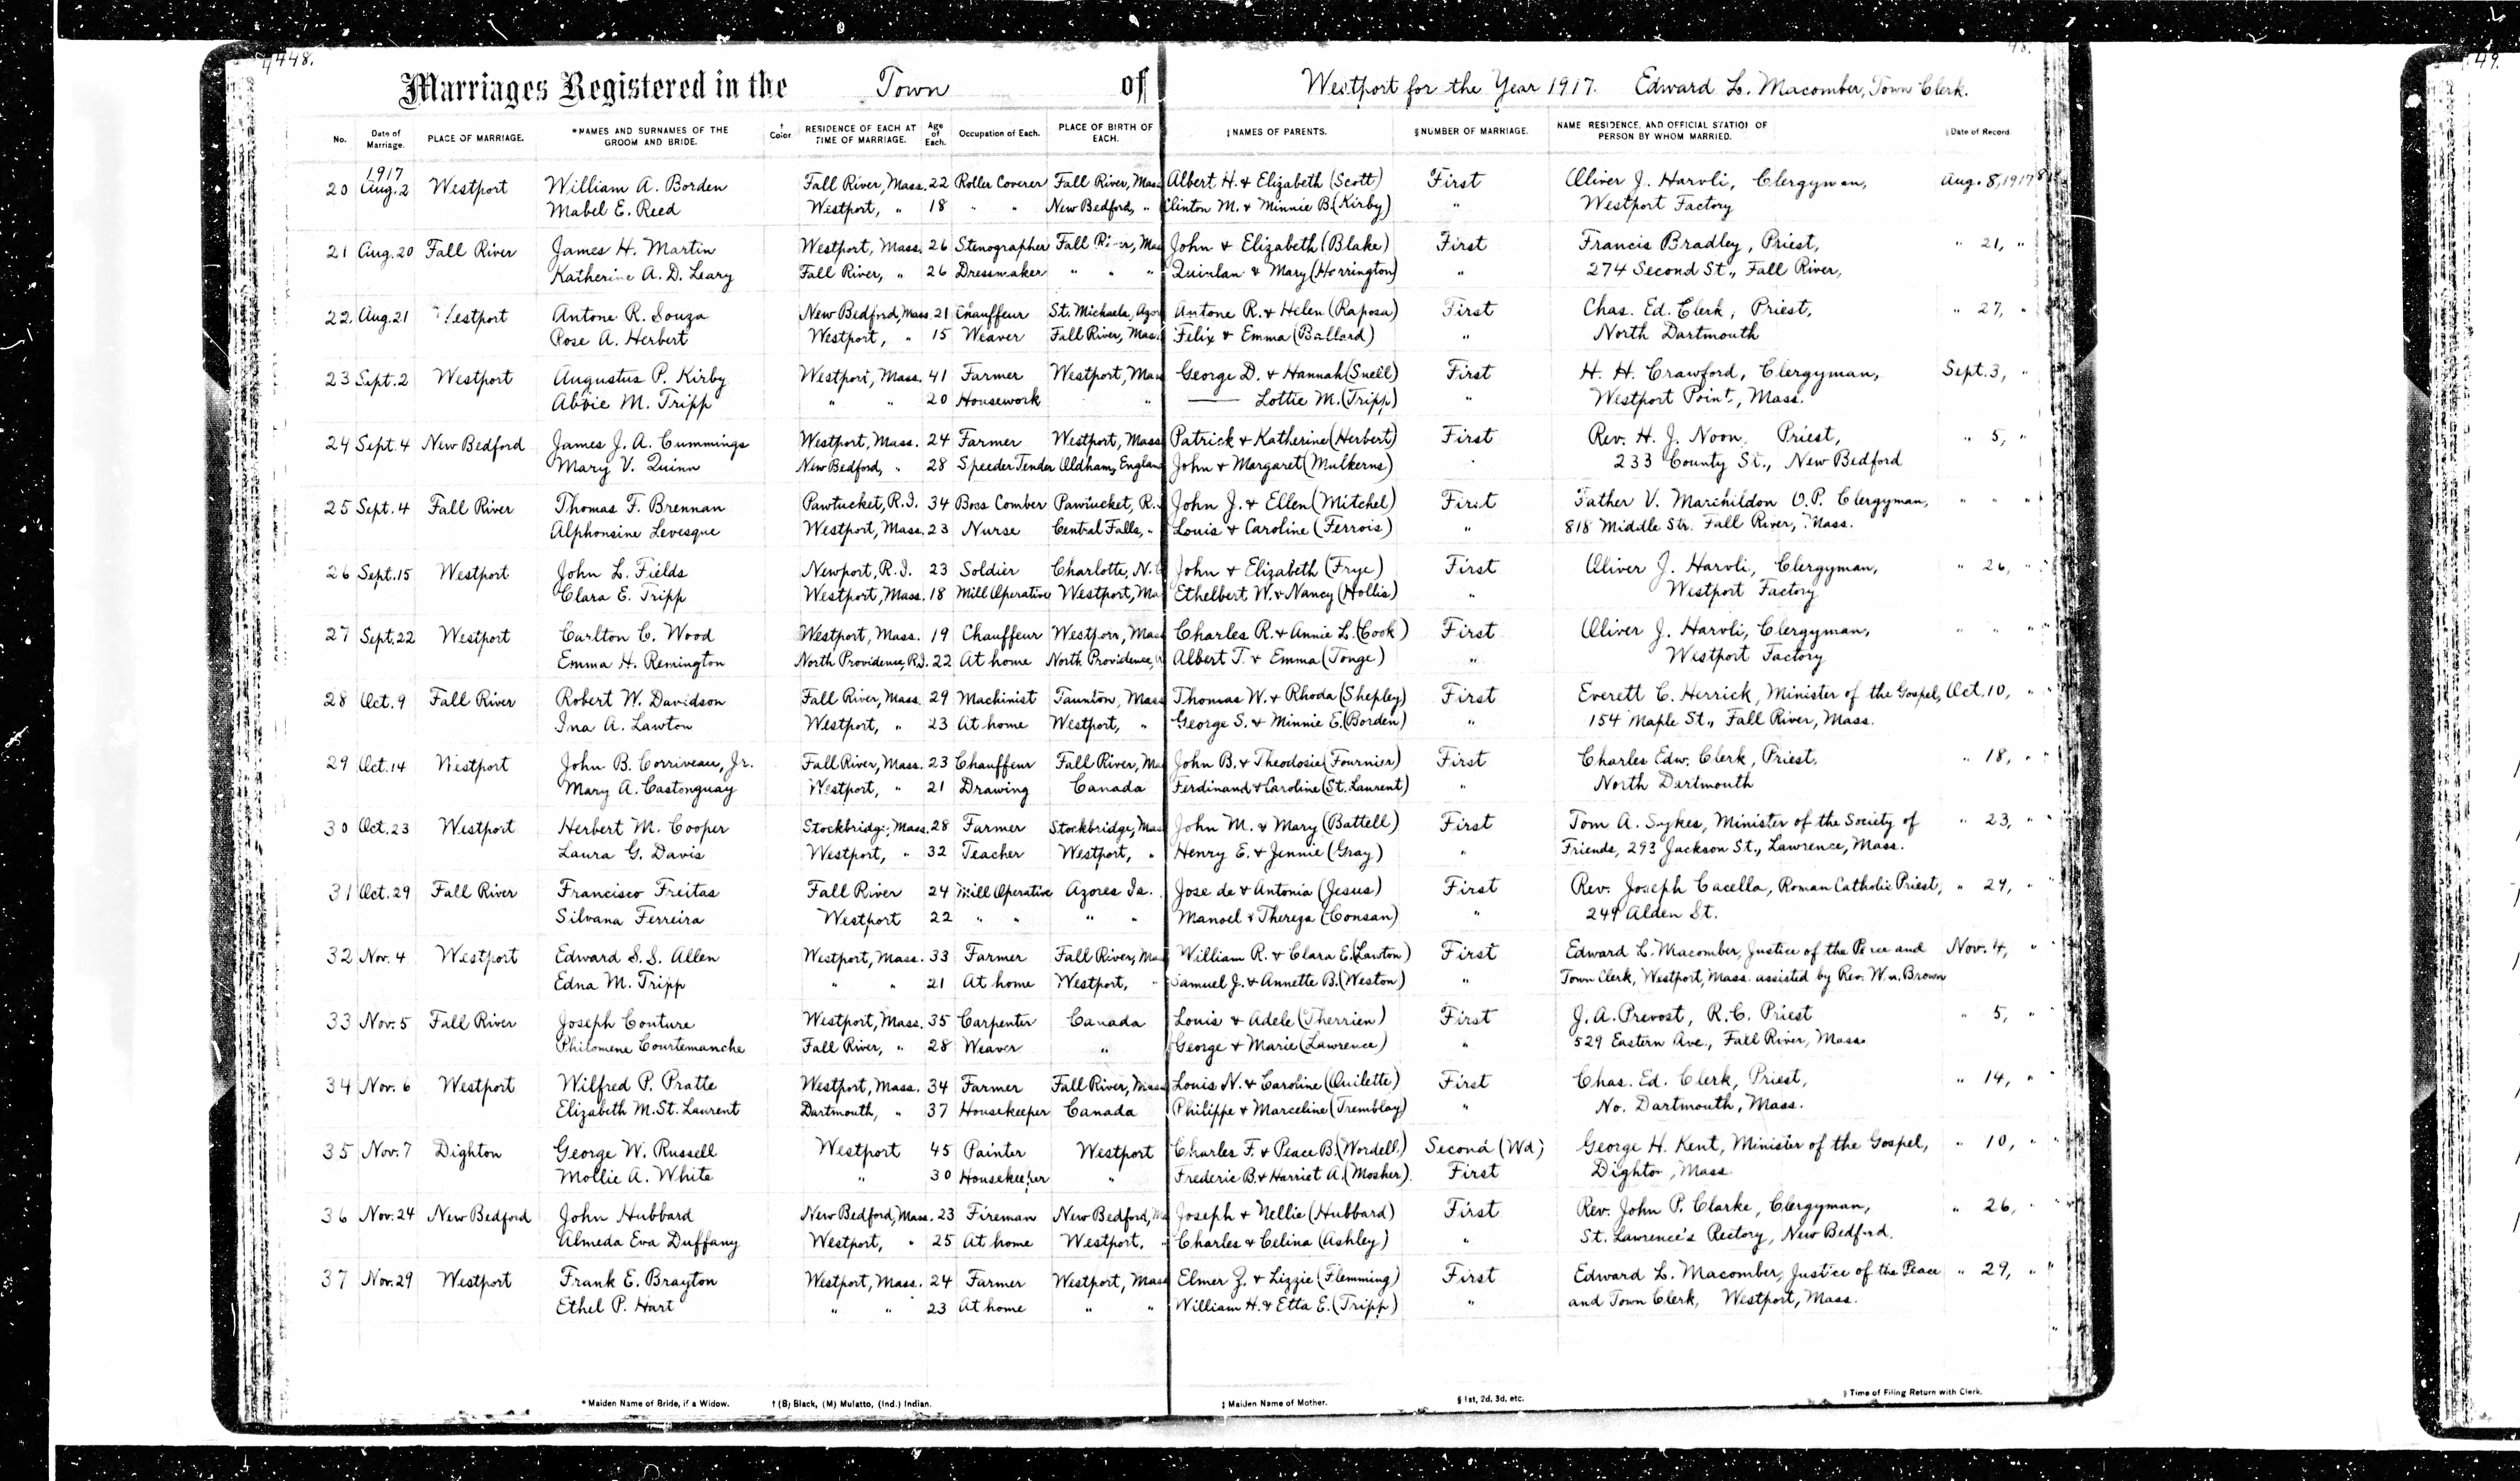 4448. 48. 49.
Marriages Registered in the Town of Westport for the Year 1917. Edward L. Macomber, Town Clerk.
No. Date of Marriage. PLACE OF MARRIAGE. *NAMES AND SURNAMES OF THE GROOM AND BRIDE. † Color. RESIDENCE OF EACH AT TIME OF MARRIAGE. Age of Each. Occupation of Each. PLACE OF BIRTH OF EACH. ‡ NAMES OF PARENTS. § NUMBER OF MARRIAGE. NAME RESIDENCE, AND OFFICIAL STATION OF PERSON BY WHOM MARRIED. Date of Record.
1917
20 Aug. 2 Westport William A. Borden Fall River, Mass. 22 Roller Coverer Fall River, Mass Albert H. & Elizabeth (Scott) First Oliver J. Harvli, Clergyman, Aug. 8, 1917
Mabel E. Reed Westport, " 18 " " New Bedford, " Clinton M. & Minnie B. (Kirby) " Westport Factory
21 Aug. 20 Fall River James H. Martin Westport, Mass. 26 Stenographer Fall River, Mas John & Elizabeth (Blake) First Francis Bradley, Priest, " 21, "
Katherine A. D. Leary Fall River, " 26 Dressmaker " " " Quinlan & Mary (Horrington) " 274 Second St., Fall River,
22. Aug. 21 Westport Antone R. Souza New Bedford, Mass. 21 Chauffeur St. Michaels, Azo Antone R. & Helen (Raposa) First Chas. Ed. Clerk, Priest, " 27, "
Rose A. Herbert Westport, " 15 Weaver Fall River, Mass Felix & Emma (Ballard) " North Dartmouth
23 Sept. 2 Westport Augustus P. Kirby Westport, Mass. 41 Farmer Westport, Mass George D. & Hannah (Snell) First H. H. Crawford, Clergyman, Sept. 3, "
Abbie M. Tripp " " 20 Housework " —— Lottie M. (Tripp) " Westport Point, Mass.
24 Sept. 4 New Bedford James J. A. Cummings Westport, Mass. 24 Farmer Westport, Mass Patrick & Katherine (Herbert) First Rev. H. J. Noon, Priest, " 5, "
Mary V. Quinn New Bedford, " 28 Speeder Tender Oldham, England John & Margaret (Mulkerns) " 233 County St., New Bedford
25 Sept. 4 Fall River Thomas F. Brennan Pawtucket, R.I. 34 Boss Comber Pawtucket, R. John J. & Ellen (Mitchel) First Father V. Marchildon O.P. Clergyman, " " "
Alphonsine Levesque Westport, Mass. 23 Nurse Central Falls, " Louis & Caroline (Ferrois) " 818 Middle Str. Fall River, Mass.
26 Sept. 15 Westport John L. Fields Newport, R.I. 23 Soldier Charlotte, N. C John & Elizabeth (Frye) First Oliver J. Harvli, Clergyman, " 26, "
Clara E. Tripp Westport, Mass. 18 Mill Operative Westport, Ma Ethelbert W. & Nancy (Hollis) " Westport Factory
27 Sept. 22 Westport Carlton C. Wood Westport, Mass. 19 Chauffeur Westport, Mass Charles R. & Annie L. (Cook) First Oliver J. Harvli, Clergyman, " " "
Emma H. Remington North Providence, R.I. 22 At home North Providence, Albert T. & Emma (Tonge) " Westport Factory
28 Oct. 9 Fall River Robert W. Davidson Fall River, Mass. 29 Machinist Taunton, Mass Thomas W. & Rhoda (Shepley) First Everett C. Herrick, Minister of the Gospel, Oct. 10, "
Ina A. Lawton Westport, " 23 At home Westport, " George S. & Minnie E. (Borden) " 154 Maple St., Fall River, Mass.
29 Oct. 14 Westport John B. Corriveau, Jr. Fall River, Mass. 23 Chauffeur Fall River, Ma John B. & Theodosie (Fournier) First Charles Edw. Clerk, Priest, " 18, "
Mary A. Castonguay Westport, " 21 Drawing Canada Ferdinand & Caroline (St. Laurent) " North Dartmouth
30 Oct. 23 Westport Herbert M. Cooper Stockbridge, Mass. 28 Farmer Stockbridge, Mass John M. & Mary (Battell) First Tom A. Sykes, Minister of the Society of " 23, "
Laura G. Davis Westport, " 32 Teacher Westport, " Henry E. & Jennie (Gray) " Friends, 293 Jackson St., Lawrence, Mass.
31 Oct. 29 Fall River Francisco Freitas Fall River 24 Mill Operative Azores Is. Jose de & Antonia (Jesus) First Rev. Joseph Cacella, Roman Catholic Priest, " 29, "
Silvana Ferreira Westport 22 " " " " Manoel & Thereza (Consan) " 249 Alden St.
32 Nov. 4 Westport Edward S. S. Allen Westport, Mass. 33 Farmer Fall River, Mas William R. & Clara E. (Lawton) First Edward L. Macomber, Justice of the Peace and Nov. 4, "
Edna M. Tripp " " 21 At home Westport, " Samuel J. & Annette B. (Weston) " Town Clerk, Westport, Mass. assisted by Rev. Wm. Brown
33 Nov. 5 Fall River Joseph Couture Westport, Mass. 35 Carpenter Canada Louis & Adele (Therrien) First J. A. Prevost, R.C. Priest " 5, "
Philomene Courtemanche Fall River, " 28 Weaver " George & Marie (Lawrence) " 529 Eastern Ave., Fall River, Mass
34 Nov. 6 Westport Wilfred P. Pratte Westport, Mass. 34 Farmer Fall River, Mass Louis N. & Caroline (Ouilette) First Chas. Ed. Clerk, Priest, " 14, "
Elizabeth M. St. Laurent Dartmouth, " 37 Housekeeper Canada Philippe & Marceline (Tremblay) " No. Dartmouth, Mass.
35 Nov. 7 Dighton George W. Russell Westport 45 Painter Westport Charles F. & Peace B. (Wordell) Second (Wd) George H. Kent, Minister of the Gospel, " 10, "
Mollie A. White " 30 Housekeeper " Frederic B. & Harriet A. (Mosher) First Dighton, Mass.
36 Nov. 24 New Bedford John Hubbard New Bedford, Mass. 23 Fireman New Bedford, Ma Joseph & Nellie (Hubbard) First Rev. John P. Clarke, Clergyman, " 26, "
Almeda Eva Duffany Westport, " 25 At home Westport, " Charles & Celina (Ashley) " St. Lawrence's Rectory, New Bedford.
37 Nov. 29 Westport Frank E. Brayton Westport, Mass. 24 Farmer Westport, Mass Elmer Z. & Lizzie (Flemming) First Edward L. Macomber, Justice of the Peace " 29, "
Ethel P. Hart " " 23 At home " " William H. & Etta E. (Tripp) " and Town Clerk, Westport, Mass.
* Maiden Name of Bride, if a Widow. † (B) Black, (M) Mulatto, (Ind.) Indian. ‡ Maiden Name of Mother. § 1st, 2d, 3d, etc. Time of Filing Return with Clerk.